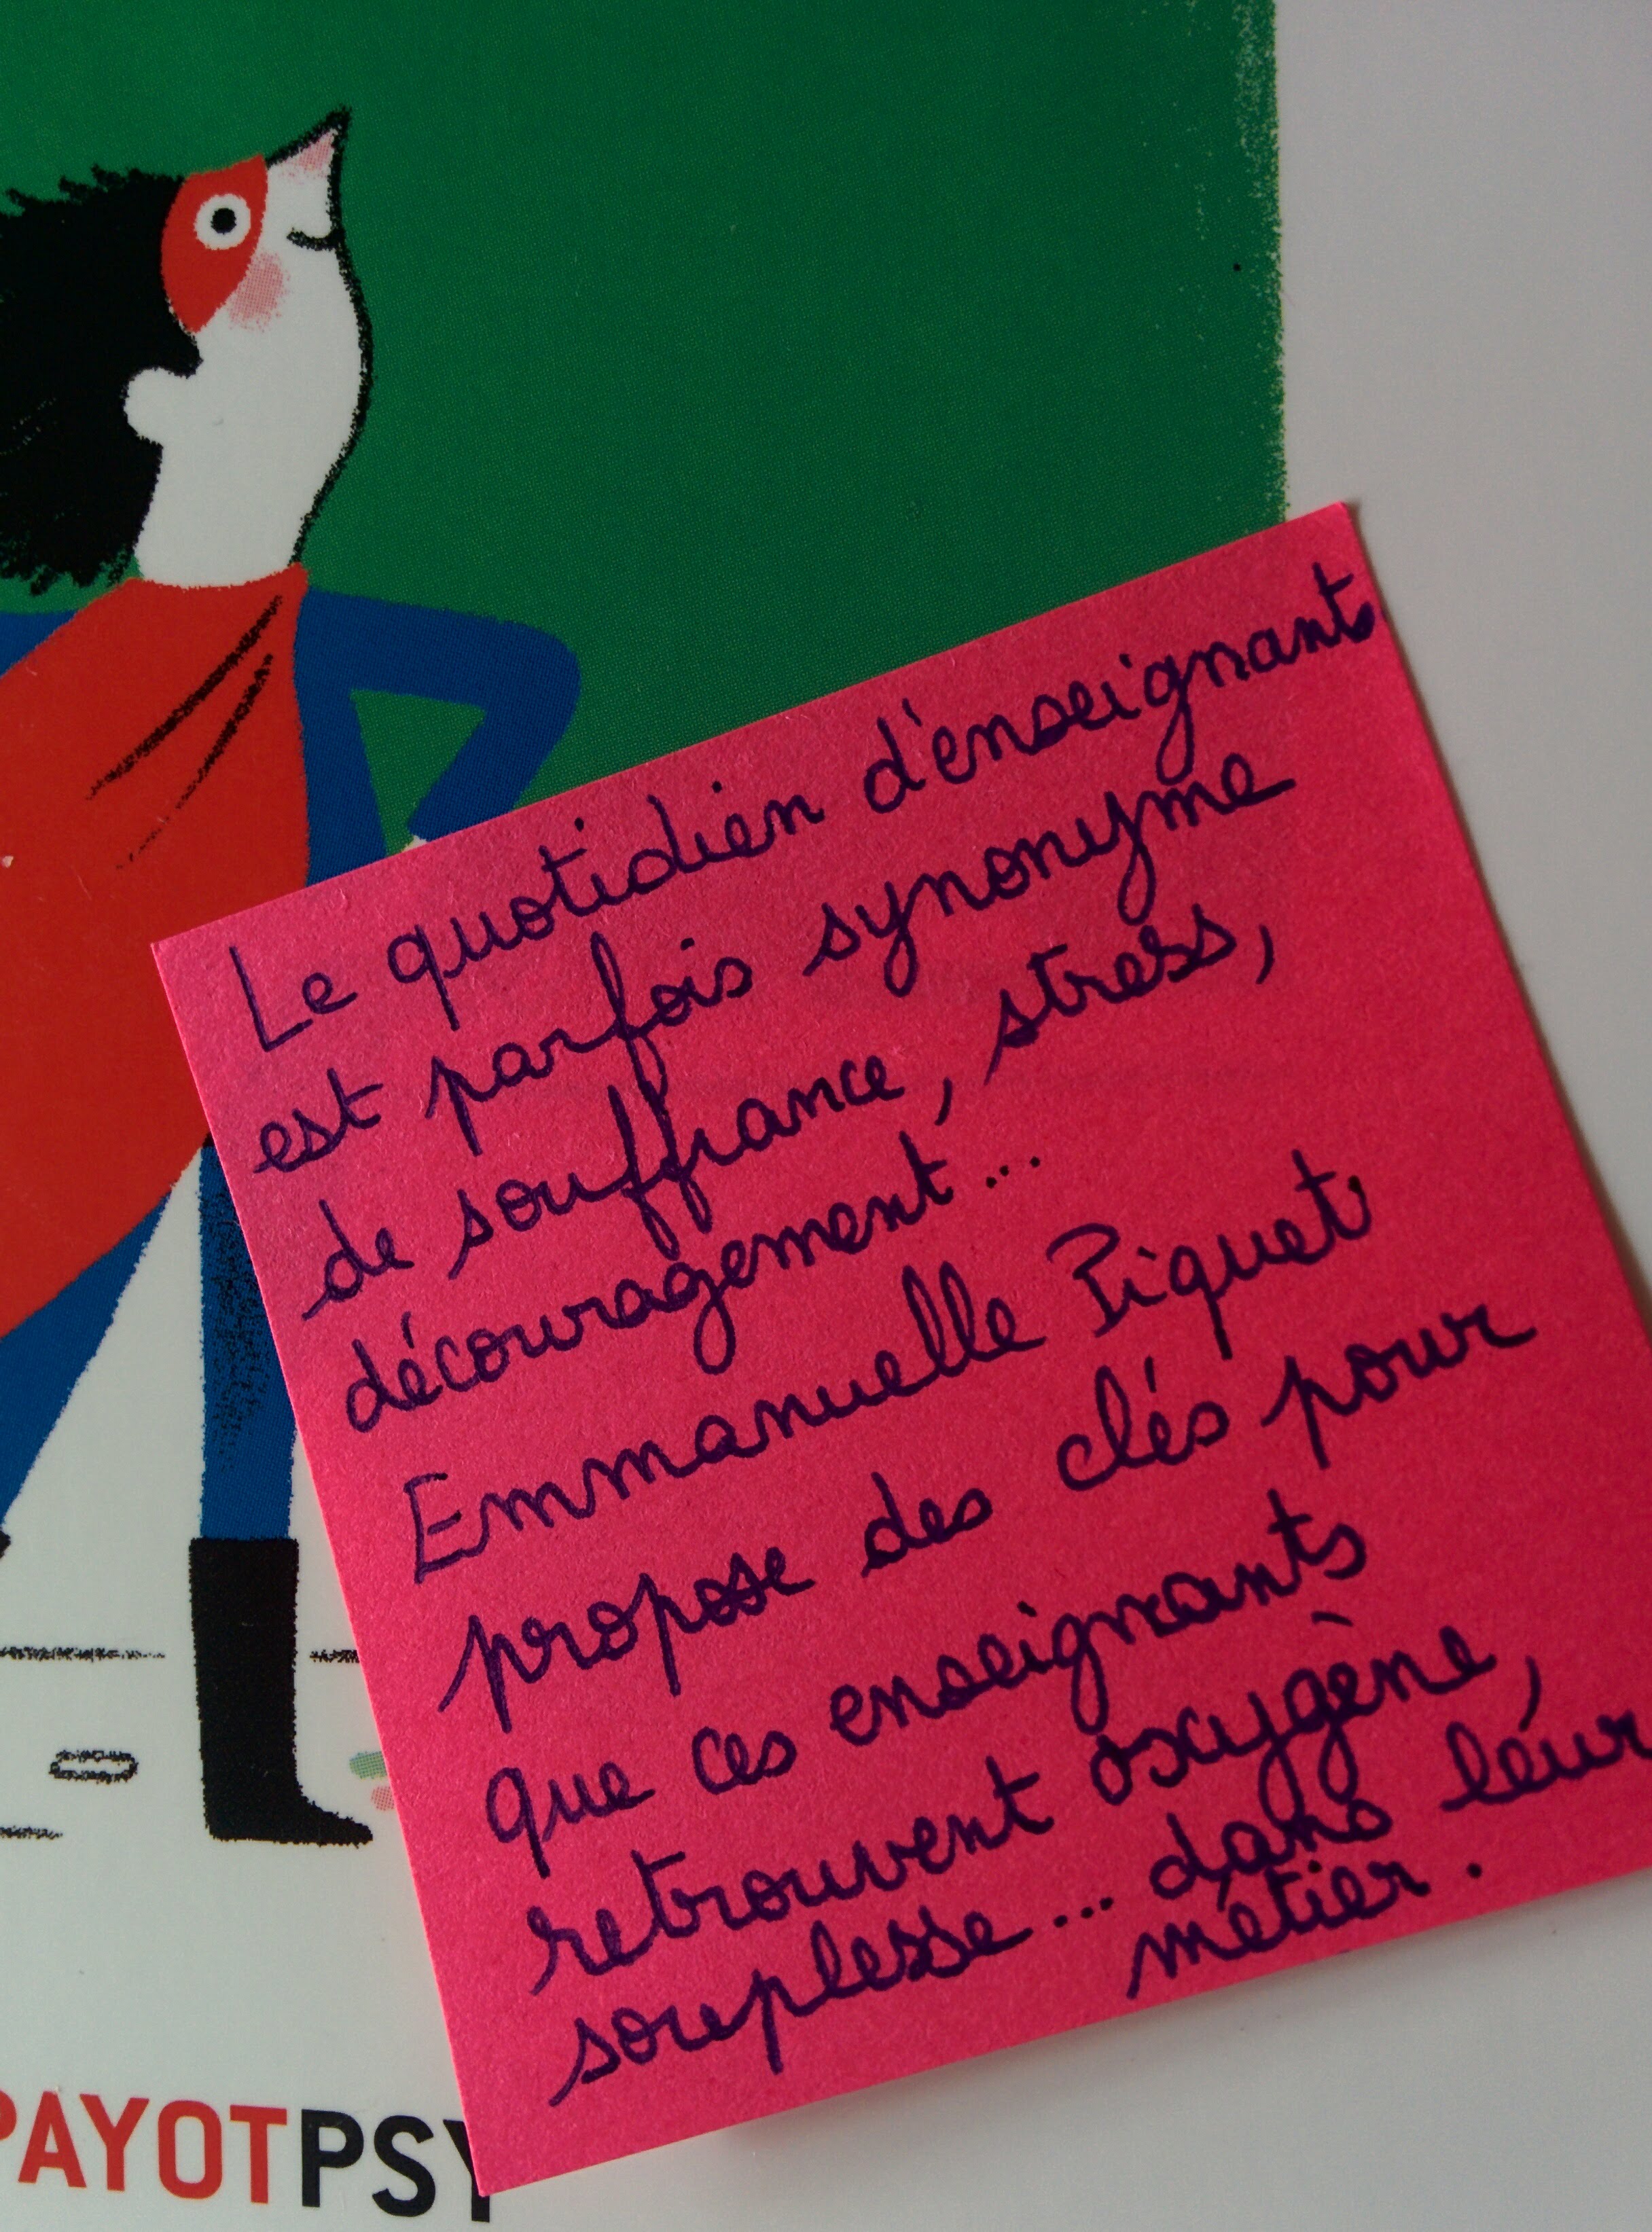 Le quotidien d'enseignant
est parfois synonyme
de souffrance, stress,
découragement...
Emmanuelle Piquet
propose des clés pour
que ces enseignants
retrouvent oxygène,
souplesse... dans leur
métier.
PAYOTPSY